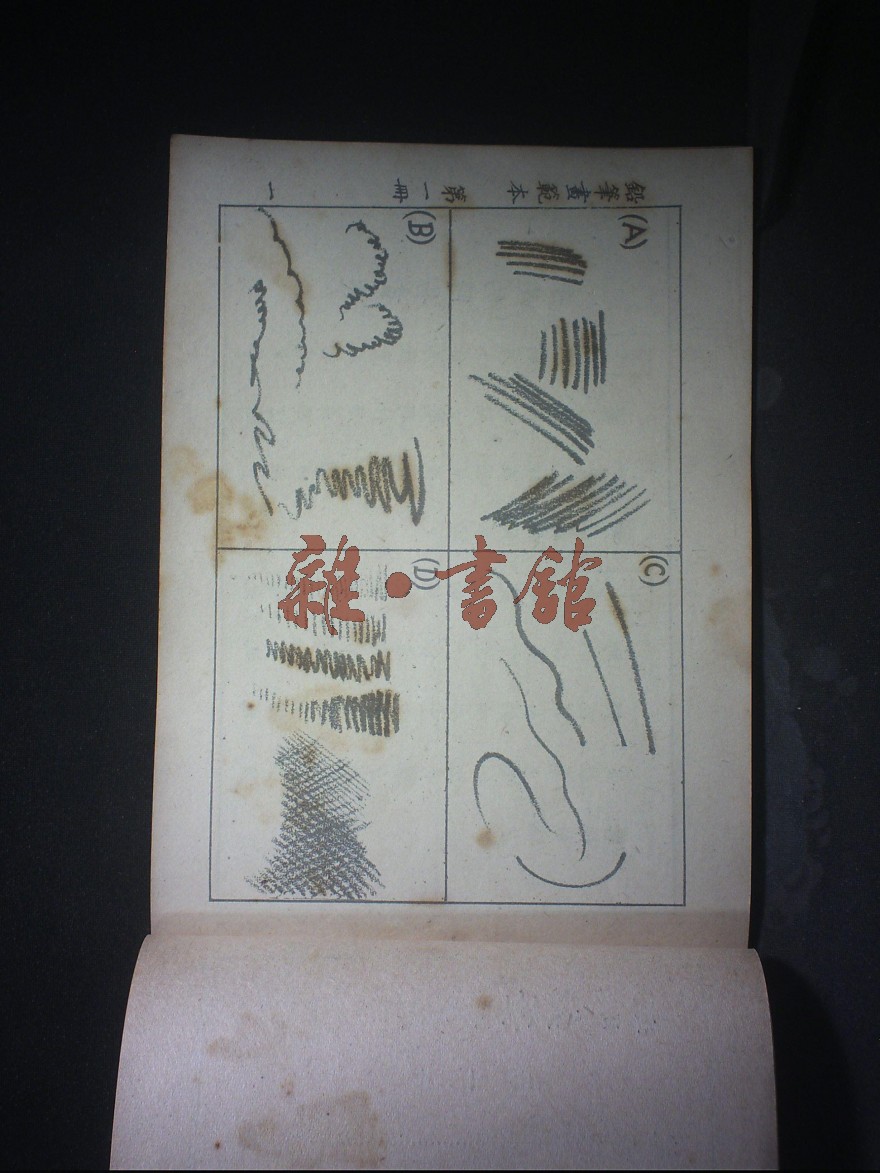 鉛筆畫範本 第一冊 一
(A)
(B)
(C)
(D)
雜•書館